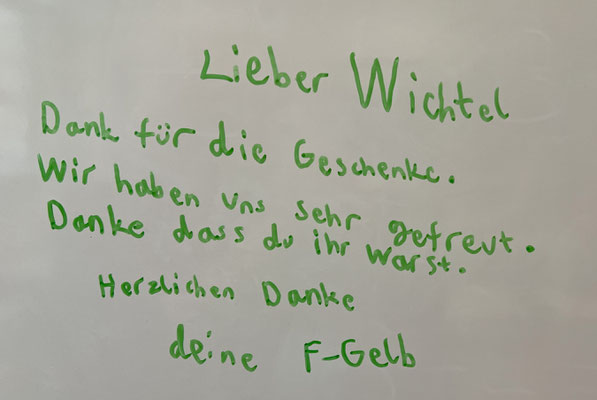 Lieber Wichtel
Dank für die Geschenke.
Wir haben uns sehr gefreut.
Danke dass du ihr warst.
Herzlichen Danke
deine F-Gelb